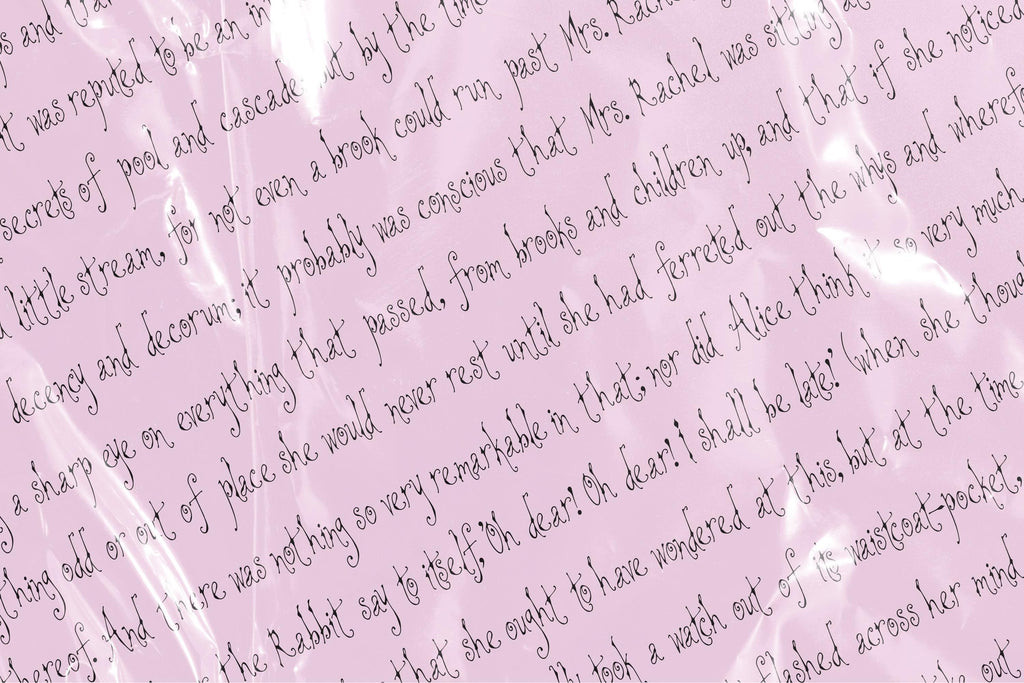 s and tra
it was reputed to be an in
secrets of pool and cascade but by the time
little stream, for not even a brook could run past Mrs. Rache
decency and decorum; it probably was conscious that Mrs. Rachel was sitting at
g a sharp eye on everything that passed, from brooks and children up, and that if she noticed
ything odd or out of place she would never rest until she had ferreted out the whys and wherefo
hereof. And there was nothing so very remarkable in that; nor did Alice think it so very much
the Rabbit say to itself, 'Oh dear! Oh dear! I shall be late!' (when she thoug
that she ought to have wondered at this, but at the time
lly took a watch out of its waistcoat-pocket,
flashed across her mind
ke out